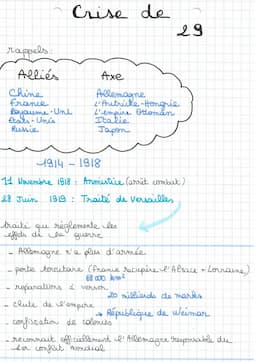 Crise de
29
rappels:
Alliés Axe
Chine Allemagne
France L'Autriche-Hongrie
Royaume-Uni L'empire Ottoman
États-Unis Italie
Russie Japon
1914 - 1918
11 Novembre 1918 : Armistice (arrêt combat)
28 Juin 1919 : Traité de Versailles
traité qui règlemente les
effets de la guerre
- Allemagne n'a plus d'armée
- perte territoire (France récupère l'Alsace + Lorraine)
68 000 km²
- réparations à verser
20 milliards de marks
- chute de l'empire
→ République de Weimar
- confiscation de colonies
- reconnait officiellement l'Allemagne responsable du
1er conflit mondial